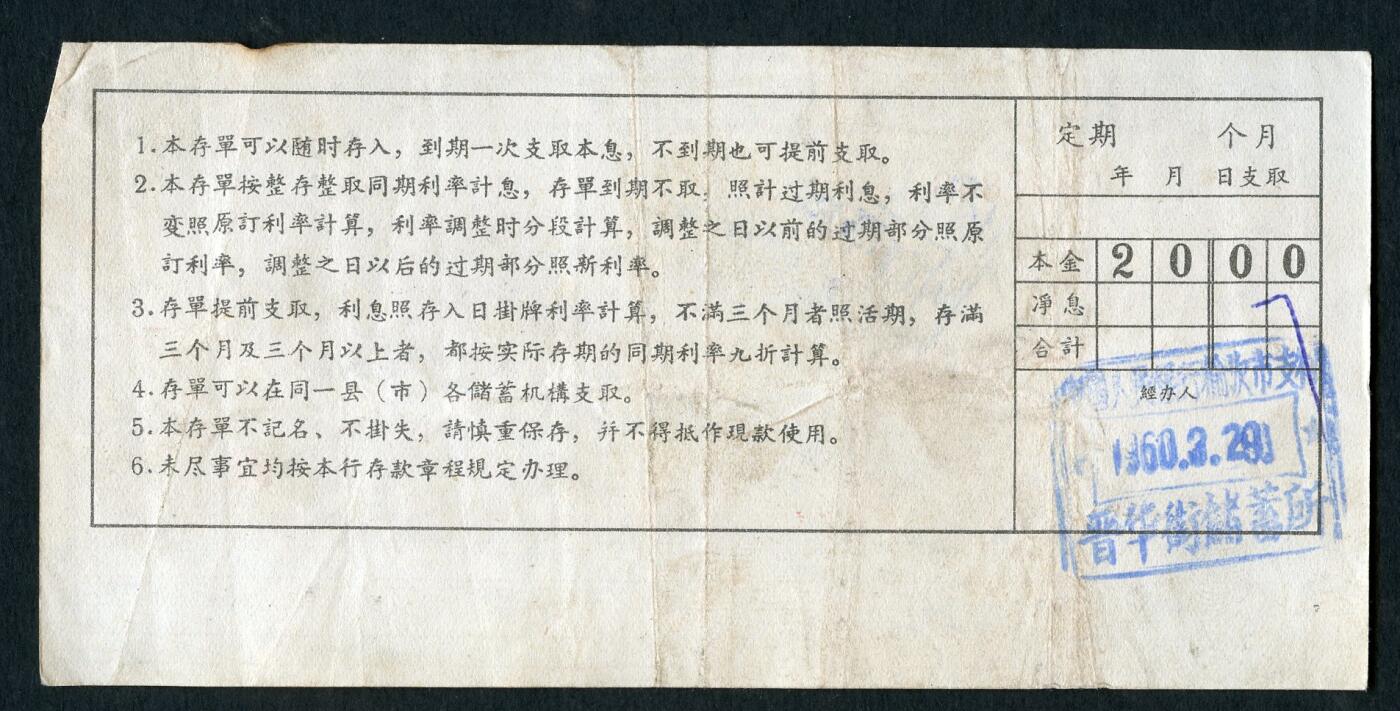 1.本存單可以随时存入，到期一次支取本息，不到期也可提前支取。
2.本存單按整存整取同期利率計息，存單到期不取，照計过期利息，利率不
变照原訂利率計算，利率調整时分段計算，調整之日以前的过期部分照原
訂利率，調整之日以后的过期部分照新利率。
3.存單提前支取，利息照存入日掛牌利率計算，不滿三个月者照活期，存滿
三个月及三个月以上者，都按实际存期的同期利率九折計算。
4.存單可以在同一县（市）各儲蓄机構支取。
5.本存單不記名、不掛失，請慎重保存，幷不得抵作現款使用。
6.未尽事宜均按本行存款章程規定办理。
定期 个月
年 月 日支取
本金 2 0 0 0
凈息
合計
經办人
人民銀行榆次市支
1960.3.29
晋华街儲蓄所